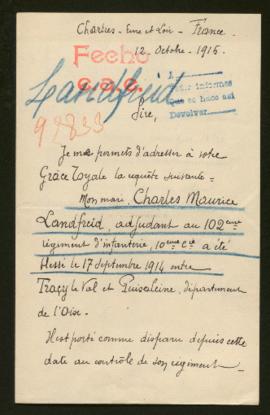 Chartres - Eure et Loir - France
12 Octobre - 1915.
Fecho
c.a.e.
Que se haco asi
Devolver
Landfreid
97833
Sire,
Je me permets d'adresser à votre
Grâce royale la requête suivante =
Mon mari, Charles Maurice
Landfreid, adjudant au 102ème
régiment d'infanterie, 10ème Cie a été
blessé le 17 Septembre 1914 entre
Tracy le Val et Puisaleine, département
de l'Oise.
Il est porté comme disparu depuis cette
date au contrôle de son régiment